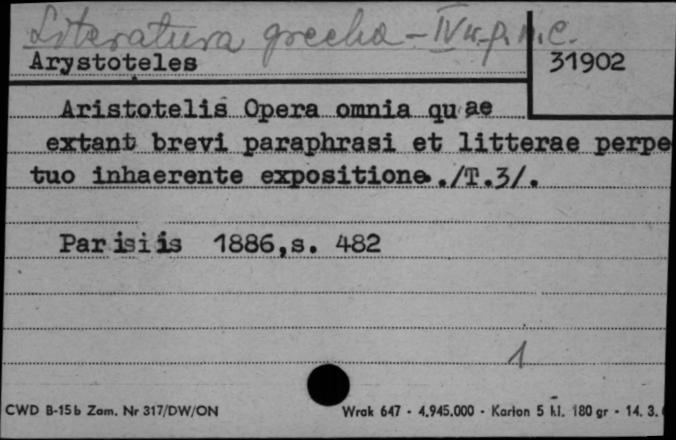 Literatura grecka - IV w. p. n. e.
Arystoteles
31902
Aristotelis Opera omnia quae
extant brevi paraphrasi et litterae perpe
tuo inhaerente expositione./T.3/.
Parisiis 1886,s. 482
1
CWD B-15b Zam. Nr 317/DW/ON
Wrak 647 - 4.945.000 - Karton 5 kl. 180 gr - 14. 3.